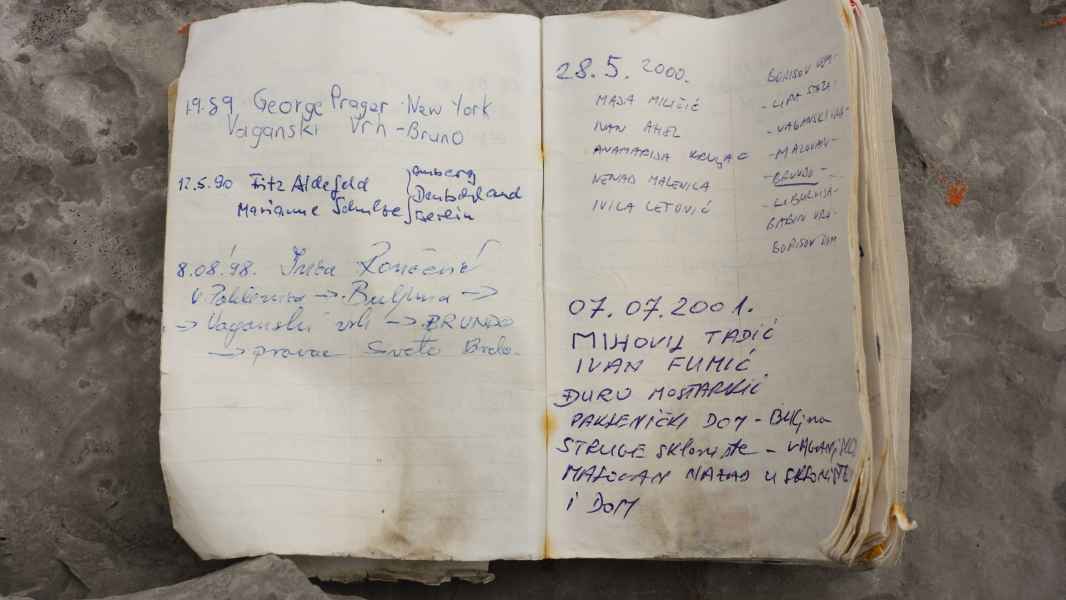 19.89 George Prager New York
Vaganski Vrh - Bruno
12.5.90 Fritz Aldefeld
Marianne Schulze
Deutschland
Berlin
8.08.'98.
V. Paklenica → Buljma →
→ Vaganski vrh → BRUNDO
→ pravac Sveto Brdo.
28.5.2000.
MAJA MILIČIĆ
IVAN AHEL
ANAMARIJA
NENAD MALENICA
IVICA LETOVIĆ
BORISOV DOM-
- LIPA STAZA-
- VAGANSKI VRH-
- MALOVAN-
- BRUNDO -
- LIBURNIJA-
BABIN VRH-
BORISOV DOM
07.07.2001.
MIHOVIL TADIĆ
IVAN FUMIĆ
ĐURO
PAKLENIČKI DOM - Buljma
STRUGE sklonište - VAGANSKI
MALOVAN NAZAD U SKLONIŠTE
i DOM